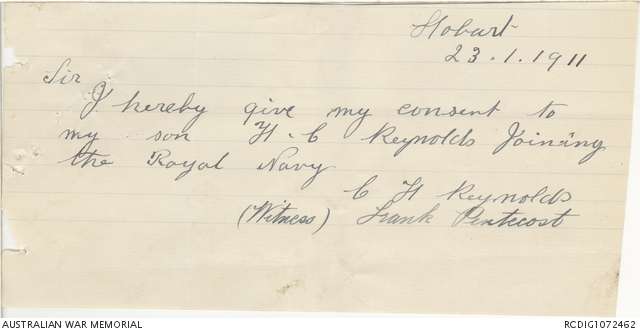 Hobart
23.1.1911
Sir
I hereby give my consent to
my son H. C Reynolds Joining
the Royal Navy
C H Reynolds
(Witness) Frank Pentecost
AUSTRALIAN WAR MEMORIAL
RCDIG1072462